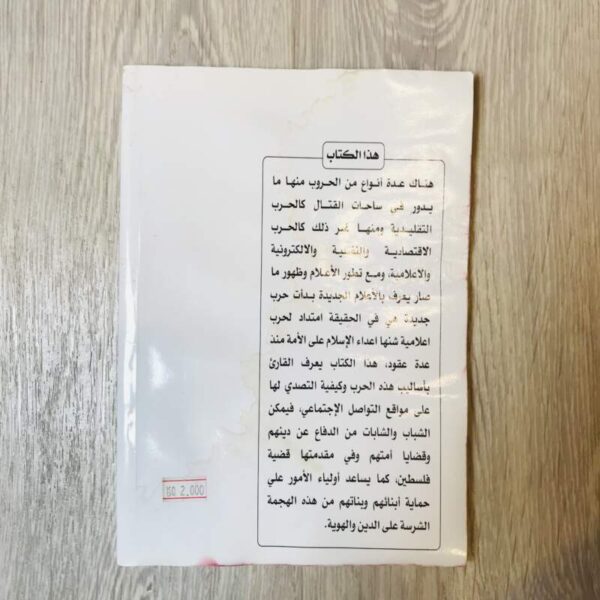 هذا الكتاب
هناك عدة أنواع من الحروب منها ما
يدور في ساحات القتال كالحرب
التقليدية ومنها غير ذلك كالحرب
الاقتصادية والنفسية والالكترونية
والاعلامية، ومع تطور الأعلام وظهور ما
صار يعرف بالأعلام الجديدة بدأت حرب
جديدة هي في الحقيقة امتداد لحرب
اعلامية شنها اعداء الإسلام على الأمة منذ
عدة عقود، هذا الكتاب يعرف القارئ
بأساليب هذه الحرب وكيفية التصدي لها
على مواقع التواصل الإجتماعي، فيمكن
الشباب والشابات من الدفاع عن دينهم
وقضايا أمتهم وفي مقدمتها قضية
فلسطين، كما يساعد أولياء الأمور علي
حماية أبنائهم وبناتهم من هذه الهجمة
الشرسة على الدين والهوية.
BD 2.000